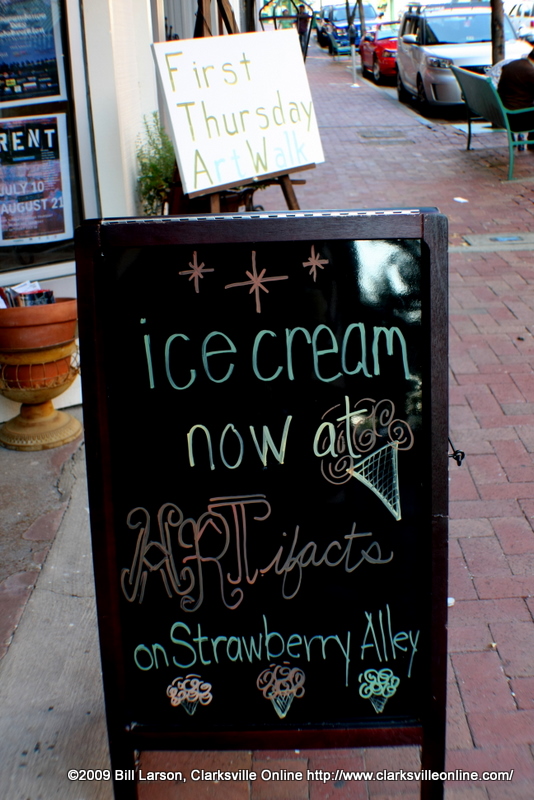 First
Thursday
Art Walk
RENT
JULY 10
AUGUST 21
ice cream
now at
ARTifacts
on Strawberry Alley
©2009 Bill Larson, Clarksville Online http://www.clarksvilleonline.com/